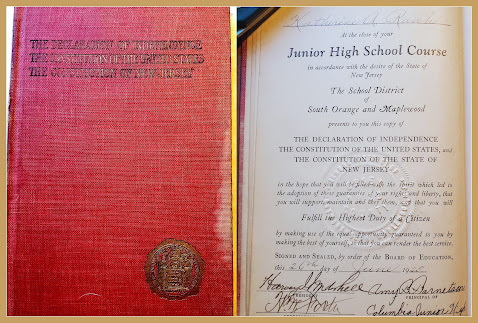 THE DECLARATION OF INDEPENDENCE
THE CONSTITUTION OF THE UNITED STATES
THE CONSTITUTION OF NEW JERSEY
At the close of your
Junior High School Course
In accordance with the desire of the State of
New Jersey
The School District
of
South Orange and Maplewood
presents to you this copy of
THE DECLARATION OF INDEPENDENCE
THE CONSTITUTION OF THE UNITED STATES, and
THE CONSTITUTION OF THE STATE OF
NEW JERSEY
in the hope that you will be filled with the spirit which led to
the adoption of these guarantees of your rights and liberty, that
you will support, maintain and that you will
Fulfill the Highest Duty of a Citizen
by making use of the equal opportunity guaranteed to you by
making the best of yourself, so that you can render the best service.
SIGNED AND SEALED, by order of the BOARD OF EDUCATION,
this 26th day of June
PRESIDENT
PRINCIPAL OF
Columbia Junior High